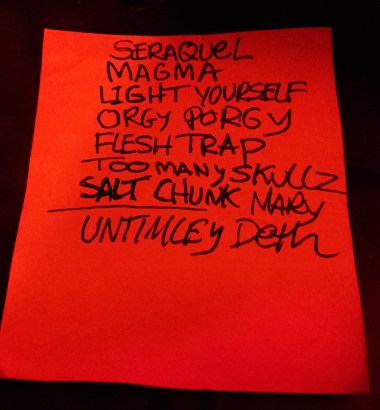 SERAQUEL
MAGMA
LIGHT YOURSELF
ORGY PORGY
FLESH TRAP
TOO MANY SKULLZ
SALT CHUNK MARY
UNTIMLEY Deth